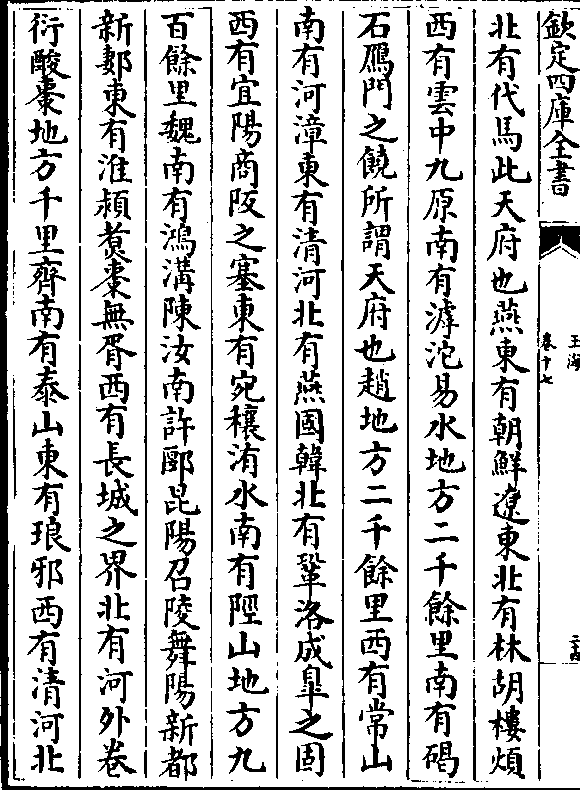 欽定四庫全書
玉海
卷十七
北有代馬此天府也燕東有朝鮮遼東北有林胡樓煩
西有雲中九原南有滹沱易水地方二千餘里南有碣
石鴈門之饒所謂天府也趙地方二千餘里西有常山
南有河漳東有清河北有燕國韓北有鞏洛成臯之固
西有宜陽商阪之塞東有宛穰洧水南有陘山地方九
百餘里魏南有鴻溝陳汝南許郾昆陽召陵舞陽新都
新郪東有淮潁煑棗無胥西有長城之界北有河外卷
衍酸棗地方千里齊南有泰山東有琅邪西有清河北